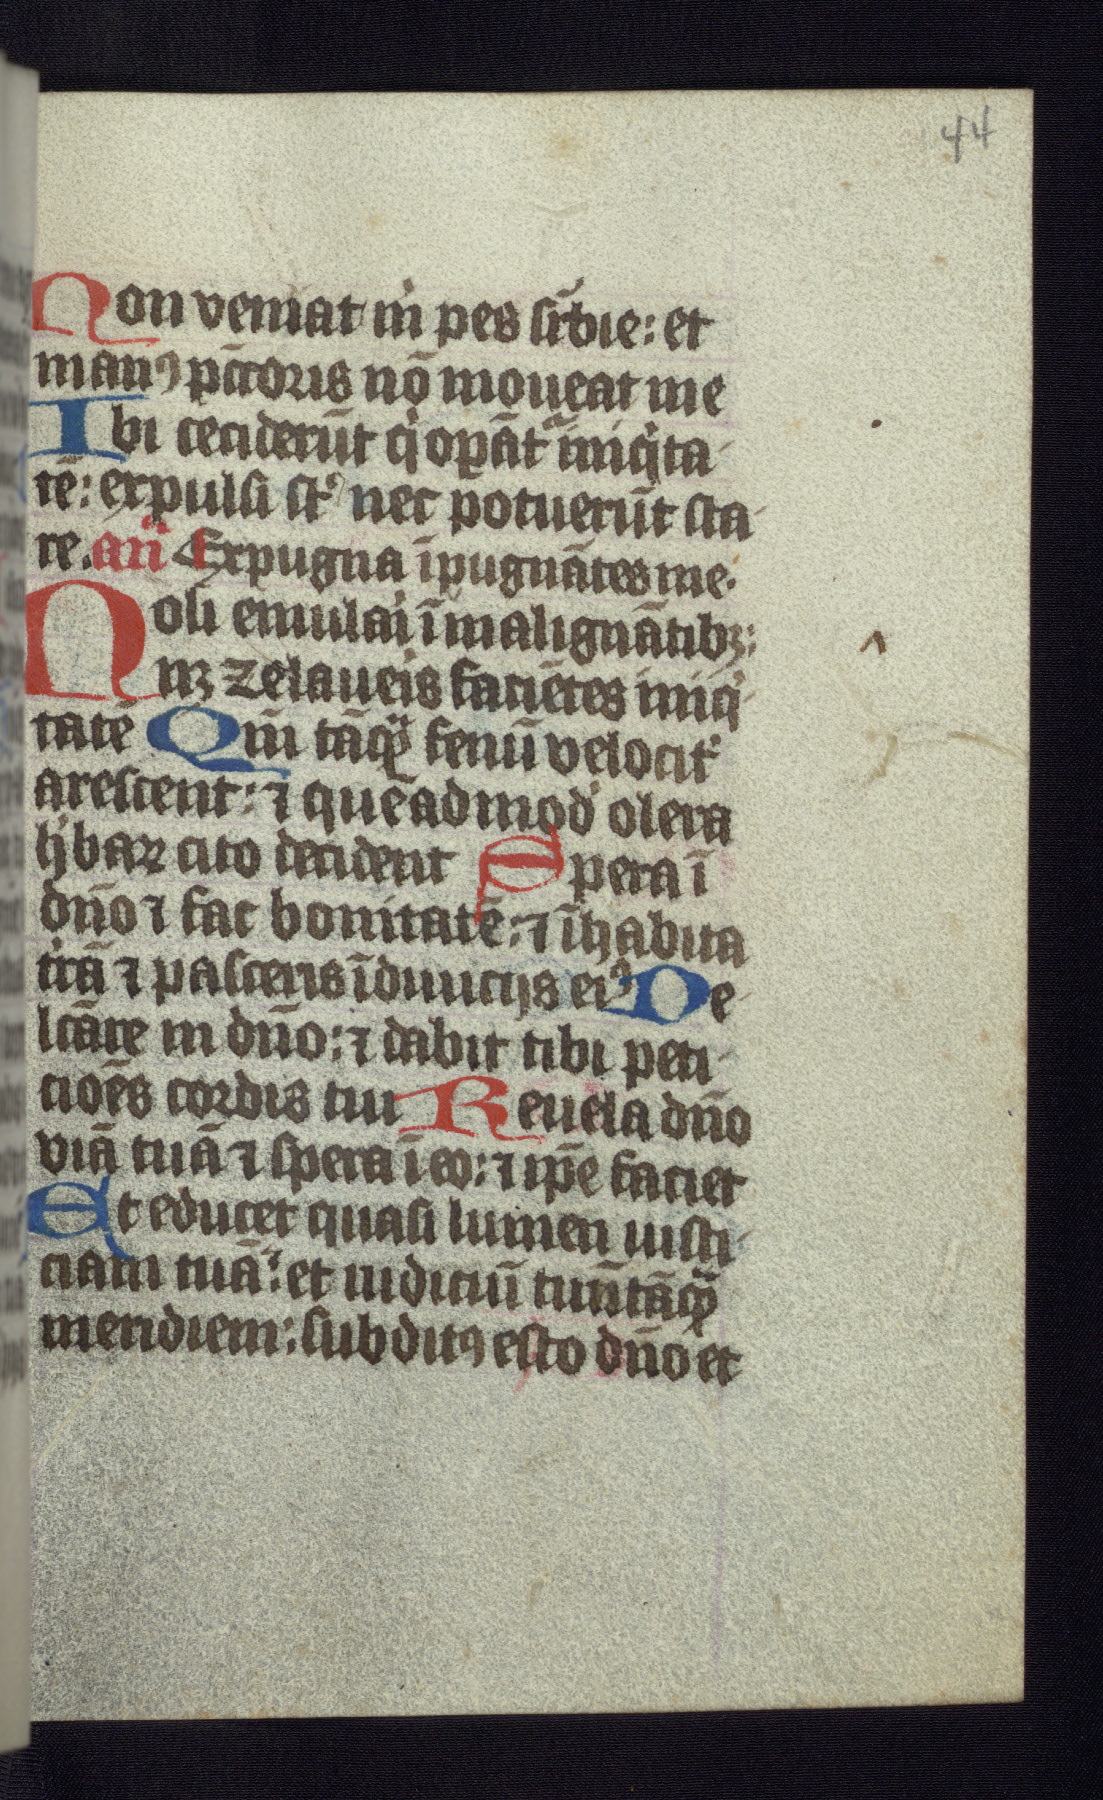 44
Non veniat m̄ pes sr̄bie: et
manꝰ pc̄toris nō moueat me
Ibi cecider̄ut q̇ oꝑāt᷑ īniq̇ta-
tē: expulsi st᷑ nec potuer̄ut sta-
re. an̄ Expugna īpugnātes me.
Noli emulari ī malignātibꝫ:
Nꝫ zelaueris faciētes iniq̇-
tatē Qm̄ tāqͣ fenū velocit᷑
arescent: ⁊ quēadmod᷑ olera
h᷑baꝝ cito decident Spera ī
dn̄o ⁊ fac bonitatē: ⁊ īhabita
tr̄ā ⁊ pasceris ī diuicijs eiꝰ De-
lcāre in dn̄o: ⁊ dabit tibi peti-
cioēs cordis tui Reuela dn̄o
viā tuā ⁊ spera ī eo: ⁊ ip̄e faciet
Et educet quasi lumen iusti-
ciam tuā: et iudiciū tuū tāqͣ
meridiem: subditꝰ esto dn̄o et